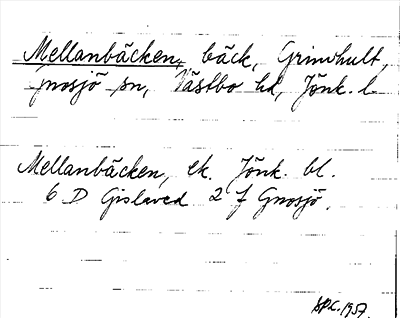 Mellanbäcken, bäck, Grimhult,
Gnosjö sn, Västbo hd, Jönk. l
Mellanbäcken, ek. Jönk. bl.
6 D Gislaved 2 f Gnosjö.
1957.